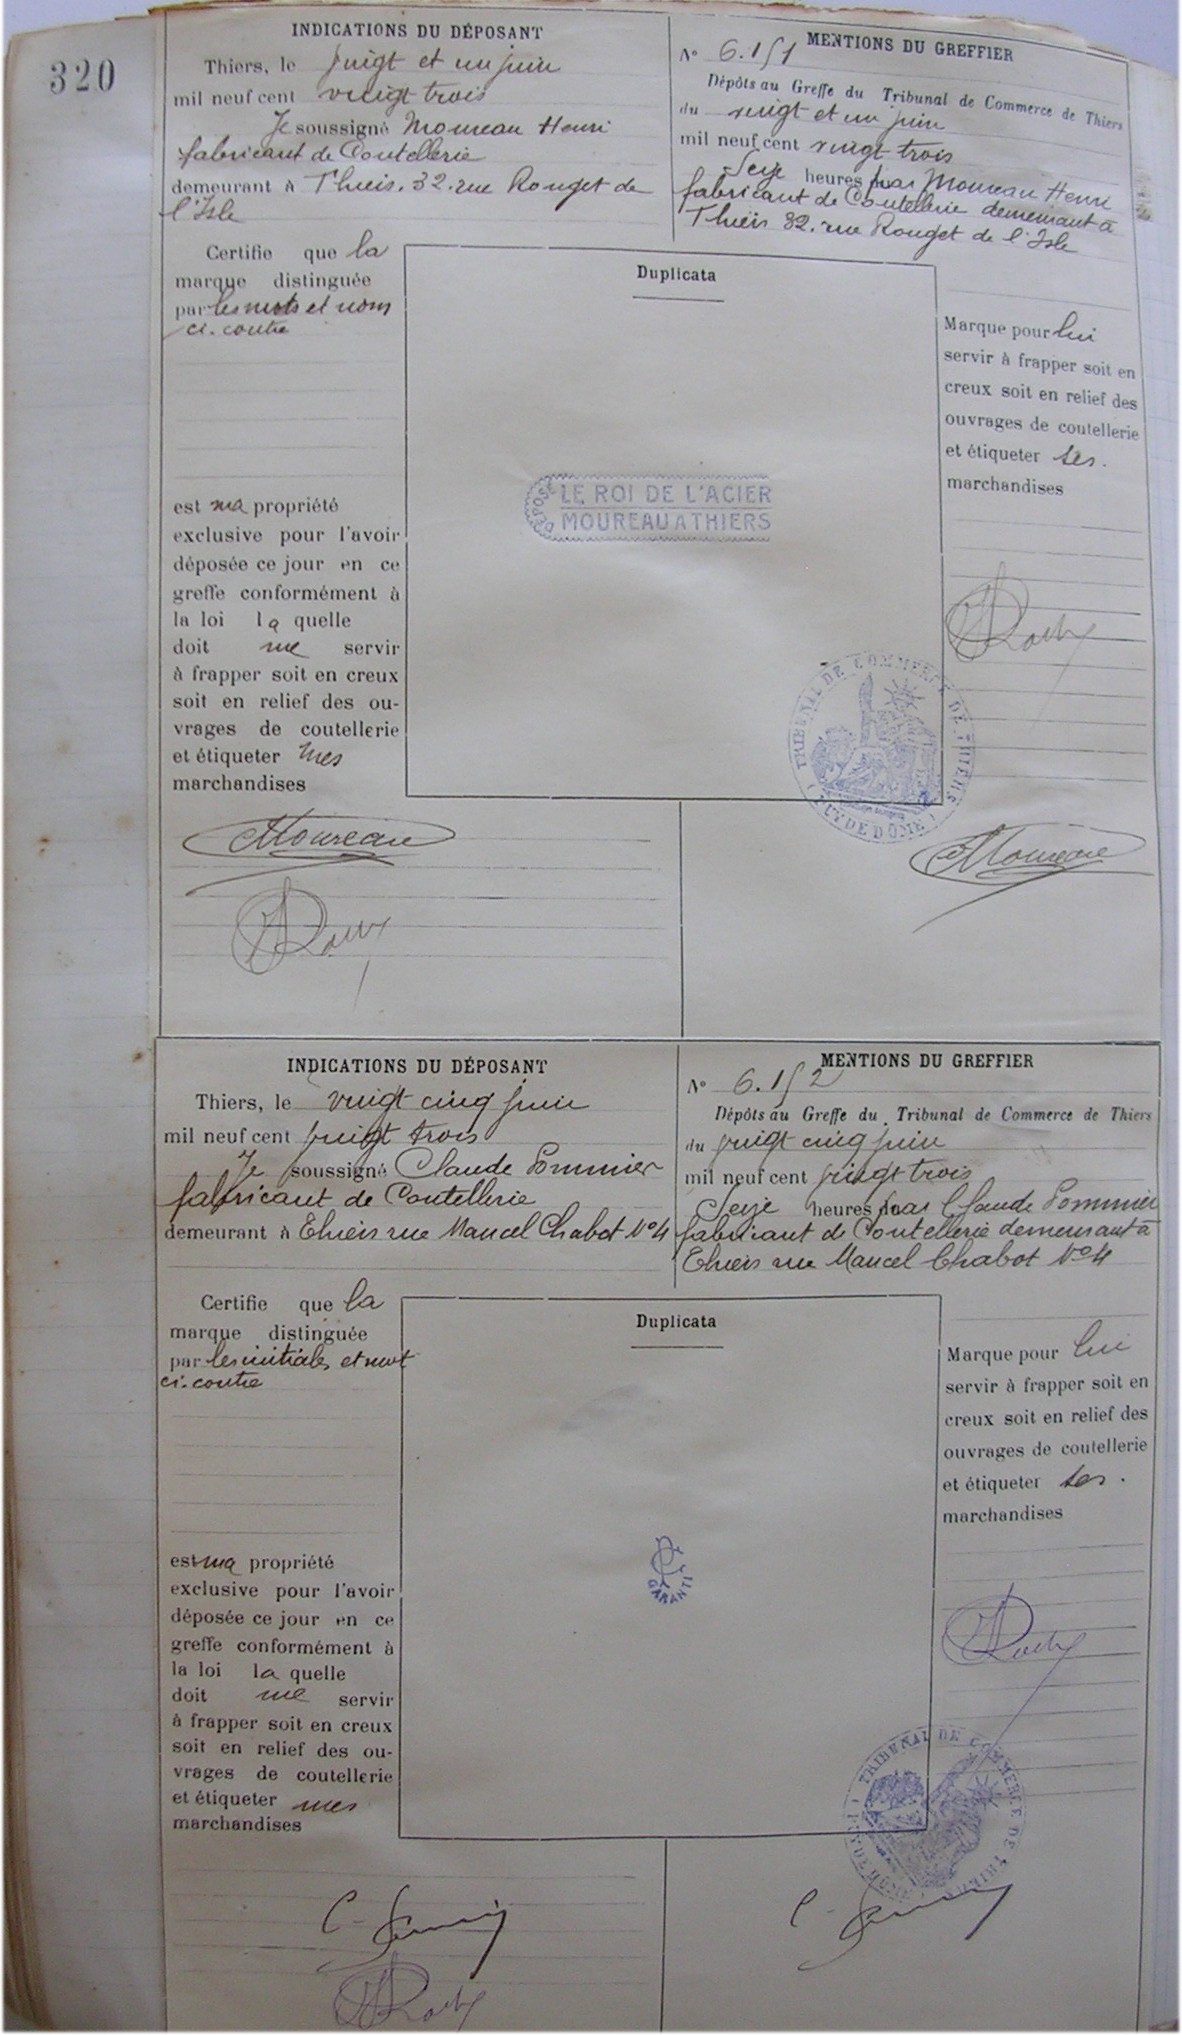 320
INDICATIONS DU DÉPOSANT
Thiers, le vingt et un juin
mil neuf cent vingt trois
Je soussigné Moureau Henri
fabricant de Coutellerie
demeurant à Thiers. 32. rue Rouget de
l'Isle
MENTIONS DU GREFFIER
N° 6.151
Dépôts au Greffe du Tribunal de Commerce de Thiers
du vingt et un juin
mil neuf cent vingt trois
Seize heures par Moureau Henri
fabricant de Coutellerie demeurant à
Thiers 32. rue Rouget de l'Isle
Certifie que la
marque distinguée
par les mots et nom
ci-contre
est ma propriété
exclusive pour l'avoir
déposée ce jour en ce
greffe conformément à
la loi la quelle
doit me servir
à frapper soit en creux
soit en relief des ou-
vrages de coutellerie
et étiqueter mes
marchandises
Duplicata
DÉPOSÉ
LE ROI DE L'ACIER
MOUREAU A THIERS
Marque pour lui
servir à frapper soit en
creux soit en relief des
ouvrages de coutellerie
et étiqueter ses.
marchandises
TRIBUNAL DE COMMERCE DE THIERS
(PUY DE DÔME)
Moureau
Moureau
INDICATIONS DU DÉPOSANT
Thiers, le vingt cinq juin
mil neuf cent vingt trois
Je soussigné Claude Pommier
fabricant de Coutellerie
demeurant à Thiers rue Mancel Chabot N°4
MENTIONS DU GREFFIER
N° 6.152
Dépôts au Greffe du Tribunal de Commerce de Thiers
du vingt cinq juin
mil neuf cent vingt trois
Seize heures par Claude Pommier
fabricant de Coutellerie demeurant à
Thiers rue Mancel Chabot N°4
Certifie que la
marque distinguée
par les initiales et mot
ci-contre
est ma propriété
exclusive pour l'avoir
déposée ce jour en ce
greffe conformément à
la loi la quelle
doit me servir
à frapper soit en creux
soit en relief des ou-
vrages de coutellerie
et étiqueter mes
marchandises
Duplicata
GARANTI
Marque pour lui
servir à frapper soit en
creux soit en relief des
ouvrages de coutellerie
et étiqueter ses.
marchandises
TRIBUNAL DE COMMERCE DE THIERS
(PUY DE DÔME)